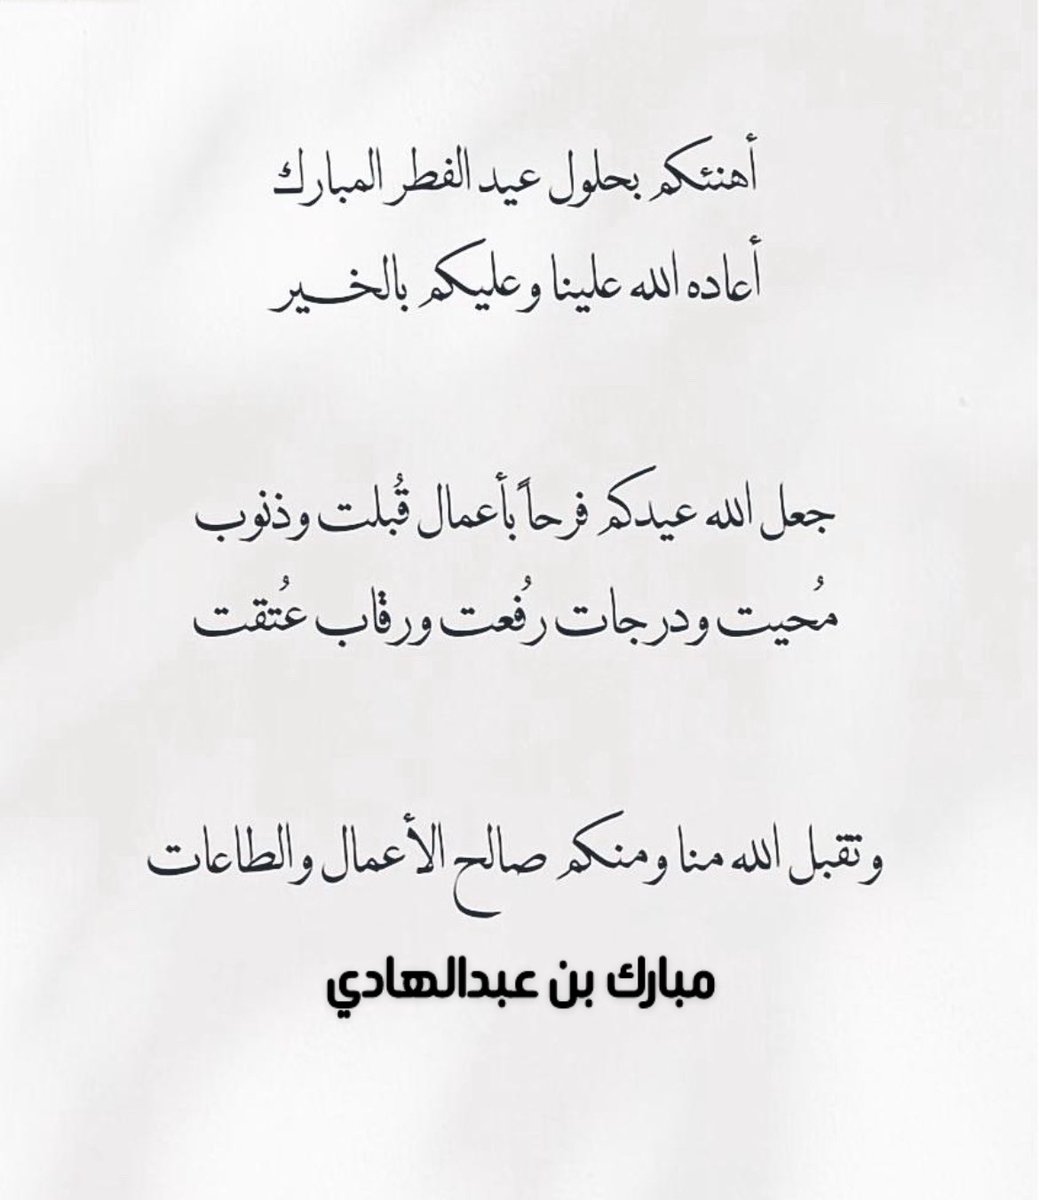 أهنئكم بحلول عيد الفطر المبارك
أعاده الله علينا وعليكم بالخير
جعل الله عيدكم فرحاً بأعمال قُبلت وذنوب
مُحيت ودرجات رُفعت ورقاب عُتقت
وتقبل الله منا ومنكم صالح الأعمال والطاعات
مبارك بن عبدالهادي